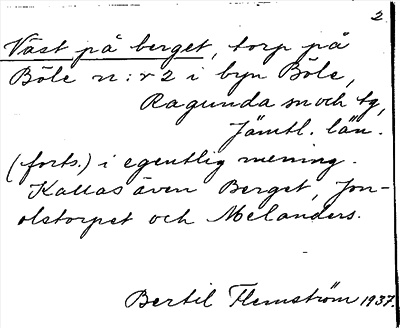 2.
Väst på berget, torp på
Böle n:r 2 i byn Böle,
Ragunda sn och tg,
Jämtl. län.
(forts.) i egentlig mening.
Kallas även Berget, Jon-
olstorpet och Melanders.
Bertil Flemström 1937.